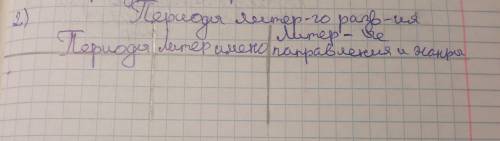 2) Периоды литер-го разв-ия
Литер-ые
Периоды литер имена направления и жанры